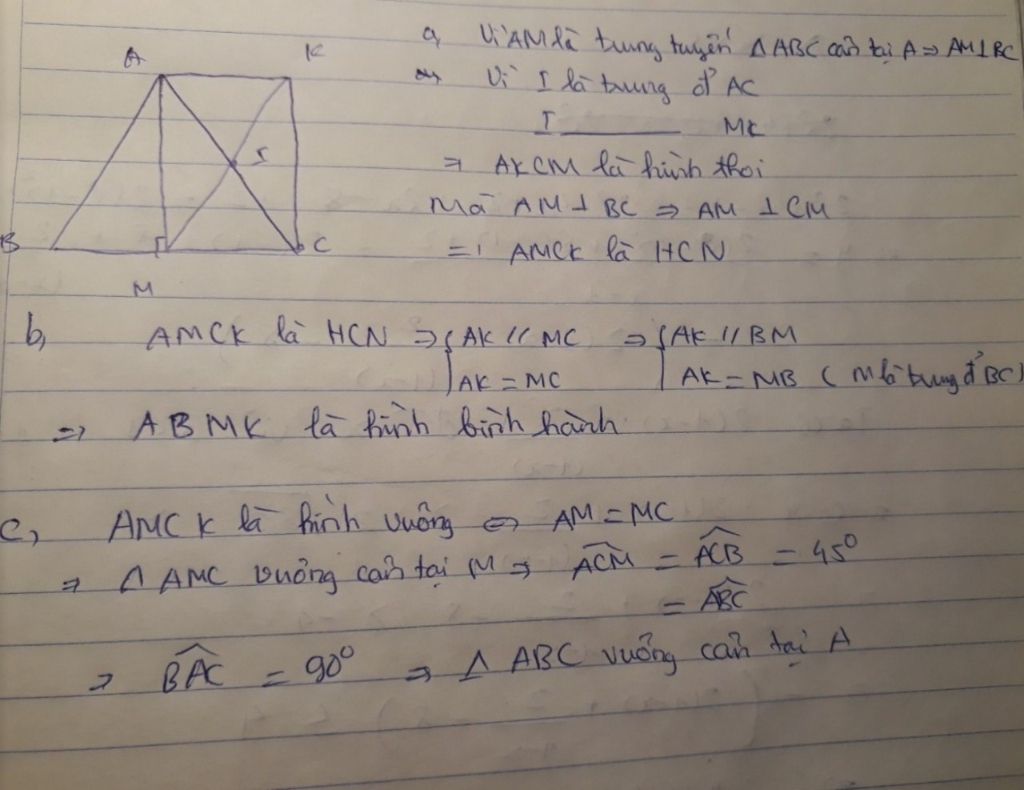 a, Vì AM là trung tuyến Δ ABC cân tại A ⇒ AM ⊥ BC
Vì I là trung đ' AC
I ———— MK
⇒ AKCM là hình thoi
Mà AM ⊥ BC ⇒ AM ⊥ CM
⇒ AMCK là HCN
A K
I
B C
M
b, AMCK là HCN ⇒ { AK // MC ⇒ { AK // BM
AK = MC AK = MB ( M là trung đ' BC)
⇒ ABMK là hình bình hành
c, AMCK là hình vuông ⇔ AM = MC
⇒ Δ AMC vuông cân tại M ⇒ ACM = ACB = 45°
= ABC
⇒ BAC = 90° ⇒ Δ ABC vuông cân tại A